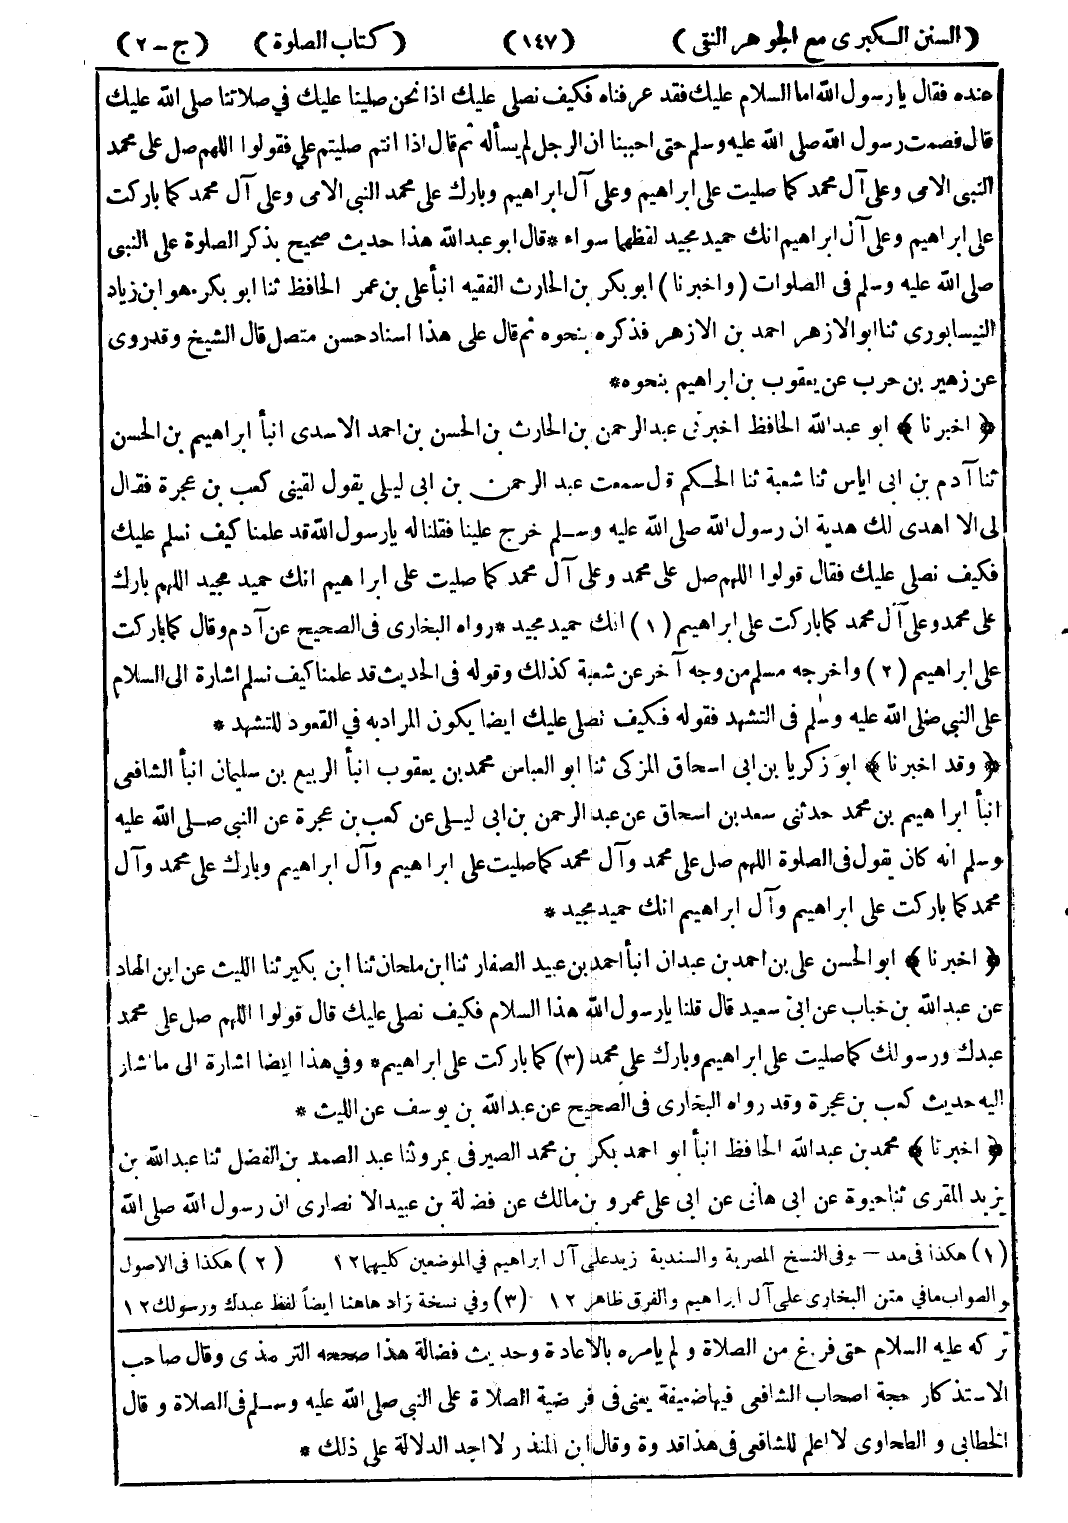 (السنن الكبرى مع الجوهر النقى) (١٤٧) (كتاب الصلوة) (ج-٢)
عنده فقال يا رسول الله اما السلام عليك فقد عرفناه فكيف نصلى عليك اذا نحن صلينا عليك في صلاتنا صلى الله عليك
قال فصمت رسول الله صلى الله عليه وسلم حتى احببنا ان الرجل لم يسأله ثم قال اذا انتم صليتم علي فقولوا اللهم صل على محمد
النبى الامى وعلى آل محمد كما صليت على ابراهيم وعلى آل ابراهيم وبارك على محمد النبى الامى وعلى آل محمد كما باركت
على ابراهيم وعلى آل ابراهيم انك حميد مجيد لفظهما سواء *قال ابو عبد الله هذا حديث صحيح بذكر الصلوة على النبى
صلى الله عليه وسلم فى الصلوات (واخبرنا) ابو بكر بن الحارث الفقيه انبأ على بن عمر الحافظ ثنا ابو بكر هو ابن زياد
النيسابورى ثنا ابو الازهر احمد بن الازهر فذكره بنحوه ثم قال على هذا اسناد حسن متصل قال الشيخ وقد روى
عن زهير بن حرب عن يعقوب بن ابراهيم بنحوه*
﴿ اخبرنا ﴾ ابو عبد الله الحافظ اخبرنى عبد الرحمن بن الحارث بن الحسن بن احمد الاسدى انبأ ابراهيم بن الحسن
ثنا آدم بن ابى اياس ثنا شعبة ثنا الحكم قال سمعت عبد الرحمن بن ابى ليلى يقول لقينى كعب بن عجرة فقال
لى الا اهدى لك هدية ان رسول الله صلى الله عليه وسلم خرج علينا فقلنا له يا رسول الله قد علمنا كيف نسلم عليك
فكيف نصلى عليك فقال قولوا اللهم صل على محمد وعلى آل محمد كما صليت على ابراهيم انك حميد مجيد اللهم بارك
على محمد وعلى آل محمد كما باركت على ابراهيم (١) انك حميد مجيد *رواه البخارى فى الصحيح عن آدم وقال كما باركت
على ابراهيم (٢) واخرجه مسلم من وجه آخر عن شعبة كذلك وقوله فى الحديث قد علمنا كيف نسلم اشارة الى السلام
على النبى صلى الله عليه وسلم فى التشهد فقوله فكيف نصلى عليك ايضا يكون المراد به في القعود للتشهد *
﴿ وقد اخبرنا ﴾ ابو زكريا بن ابى اسحاق المزكى ثنا ابو العباس محمد بن يعقوب انبأ الربيع بن سليمان انبأ الشافعى
انبأ ابراهيم بن محمد حدثنى سعد بن اسحاق عن عبد الرحمن بن ابى ليلى عن كعب بن عجرة عن النبى صلى الله عليه
وسلم انه كان يقول فى الصلوة اللهم صل على محمد وآل محمد كما صليت على ابراهيم وآل ابراهيم وبارك على محمد وآل
محمد كما باركت على ابراهيم وآل ابراهيم انك حميد مجيد *
﴿ اخبرنا ﴾ ابو الحسن على بن احمد بن عبدان انبأ احمد بن عبيد الصفار ثنا ابن ملحان ثنا ابن بكير ثنا الليث عن ابن الهاد
عن عبد الله بن خباب عن ابى سعيد قال قلنا يا رسول الله هذا السلام فكيف نصلى عليك قال قولوا اللهم صل على محمد
عبدك ورسولك كما صليت على ابراهيم وبارك على محمد (٣) كما باركت على ابراهيم* وفي هذا ايضا اشارة الى ما اشار
اليه حديث كعب بن عجرة وقد رواه البخارى فى الصحيح عن عبد الله بن يوسف عن الليث *
﴿ اخبرنا ﴾ محمد بن عبد الله الحافظ انبأ ابو احمد بكر بن محمد الصيرفى بمرو ثنا عبد الصمد بن الفضل ثنا عبد الله بن
يزيد المقرى ثنا حيوة عن ابى هانى عن ابى على عمرو بن مالك عن فضالة بن عبيد الانصارى ان رسول الله صلى الله
(١) هكذا فى مد – وفى النسخ المصرية والسندية زيد على آل ابراهيم في الموضعين كليهما ١٢ (٢) هكذا فى الاصول
و الصواب مافي متن البخارى على آل ابراهيم والفرق ظاهر ١٢ (٣) وفي نسخة زاد هاهنا ايضاً لفظ عبدك ورسولك ١٢
تركه عليه السلام حتى فرغ من الصلاة و لم يامره بالاعادة وحديث فضالة هذا صححه الترمذى وقال صاحب
الاستذكار حجة اصحاب الشافعى فيها ضعيفة يعنى فى فرضية الصلاة على النبى صلى الله عليه وسلم فى الصلاة و قال
الخطابى و الطحاوى لا اعلم للشافعى فى هذا قدوة وقال ابن المنذر لا اجد الدلالة على ذلك *